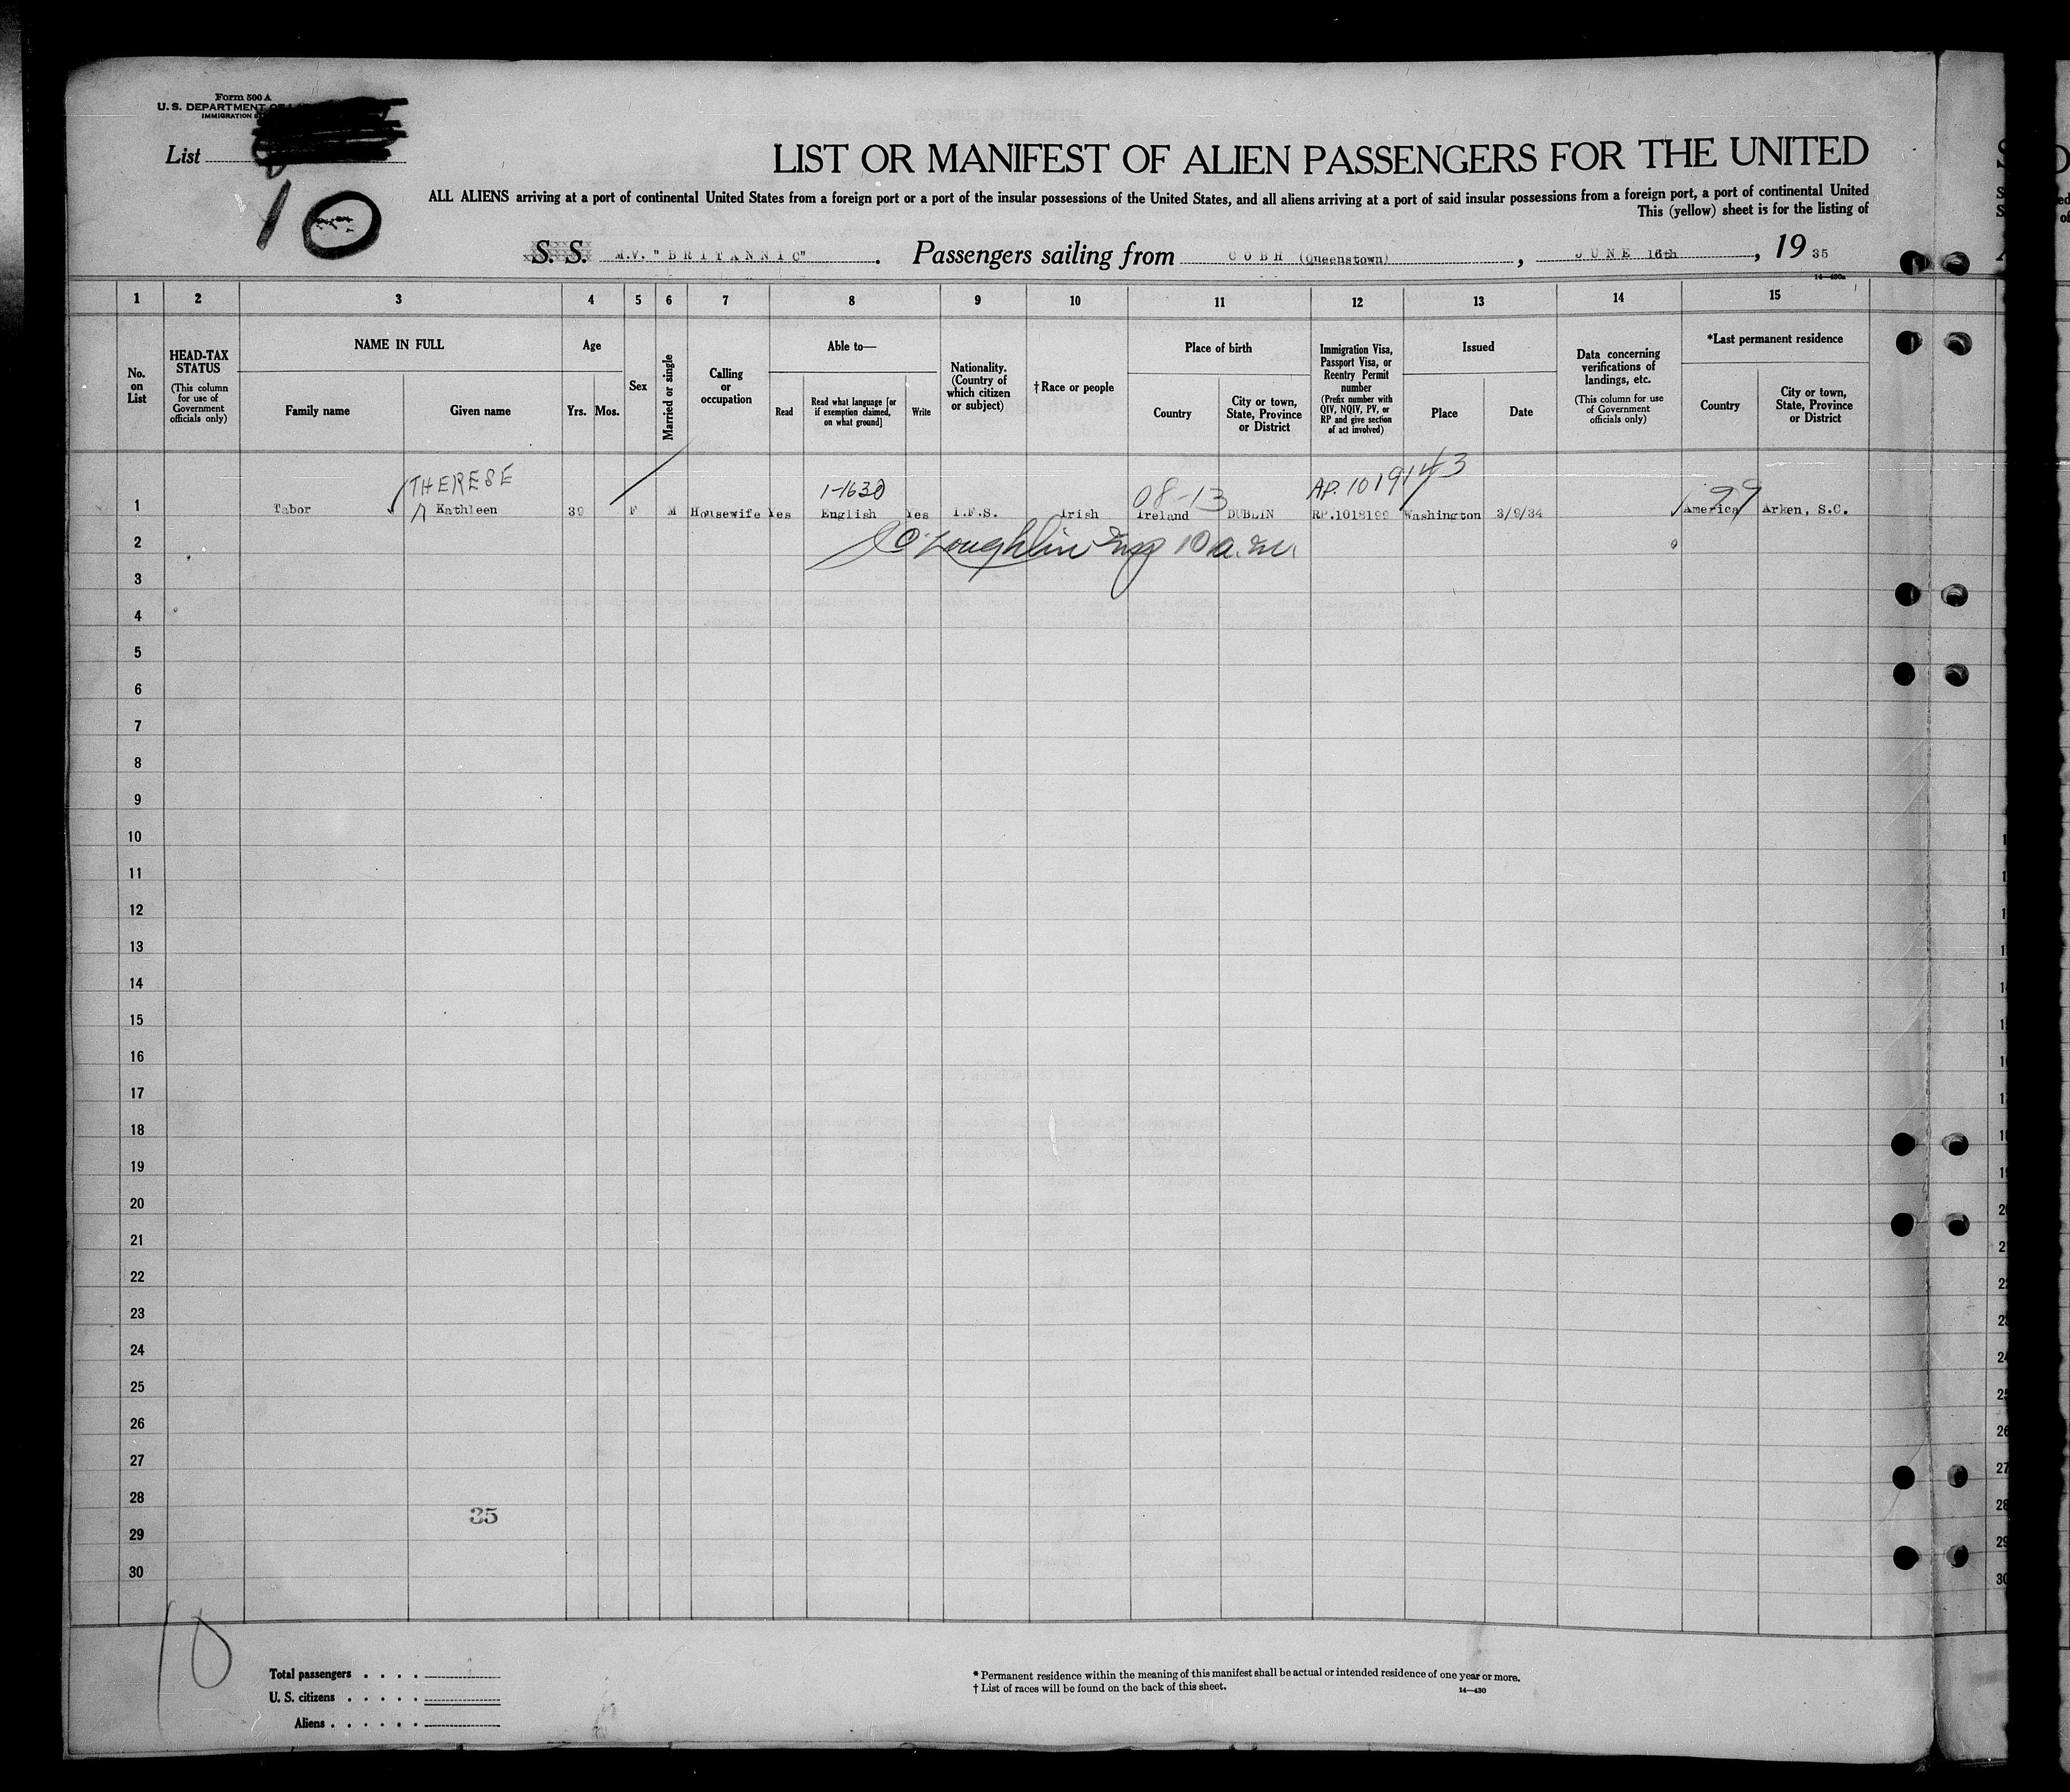 Form 500 A
U. S. DEPARTMENT OF
IMMIGRATION
List
10
LIST OR MANIFEST OF ALIEN PASSENGERS FOR THE UNITED
ALL ALIENS arriving at a port of continental United States from a foreign port or a port of the insular possessions of the United States, and all aliens arriving at a port of said insular possessions from a foreign port, a port of continental United
This (yellow) sheet is for the listing of
S. S. M.V. "BRITANNIC". Passengers sailing from COBH (Queenstown), JUNE 16th, 1935
14—430a
1 2 3 4 5 6 7 8 9 10 11 12 13 14 15
No. on List
HEAD-TAX STATUS (This column for use of Government officials only)
NAME IN FULL
Family name
Given name
Age
Yrs. Mos.
Sex
Married or single
Calling or occupation
Able to—
Read
Read what language [or if exemption claimed, on what ground]
Write
Nationality. (Country of which citizen or subject)
† Race or people
Place of birth
Country
City or town, State, Province or District
Immigration Visa, Passport Visa, or Reentry Permit number (Prefix number with QIV, NQIV, PV, or RP and give section of act involved)
Issued
Place
Date
Data concerning verifications of landings, etc. (This column for use of Government officials only)
*Last permanent residence
Country
City or town, State, Province or District
THERESE 1-1630 08-13 AP. 1019143 99
1 Tabor Kathleen 39 F M Housewife Yes English Yes I.F.S. Irish Ireland DUBLIN RP.1018199 Washington 3/9/34 America Arken, S.C.
2 O'Loughlin Insp 10 a.m.
3
4
5
6
7
8
9
10
11
12
13
14
15
16
17
18
19
20
21
22
23
24
25
26
27
28
35
29
30
10
Total passengers . . . .
U. S. citizens . . . . .
Aliens . . . . . .
* Permanent residence within the meaning of this manifest shall be actual or intended residence of one year or more.
† List of races will be found on the back of this sheet.
14—430